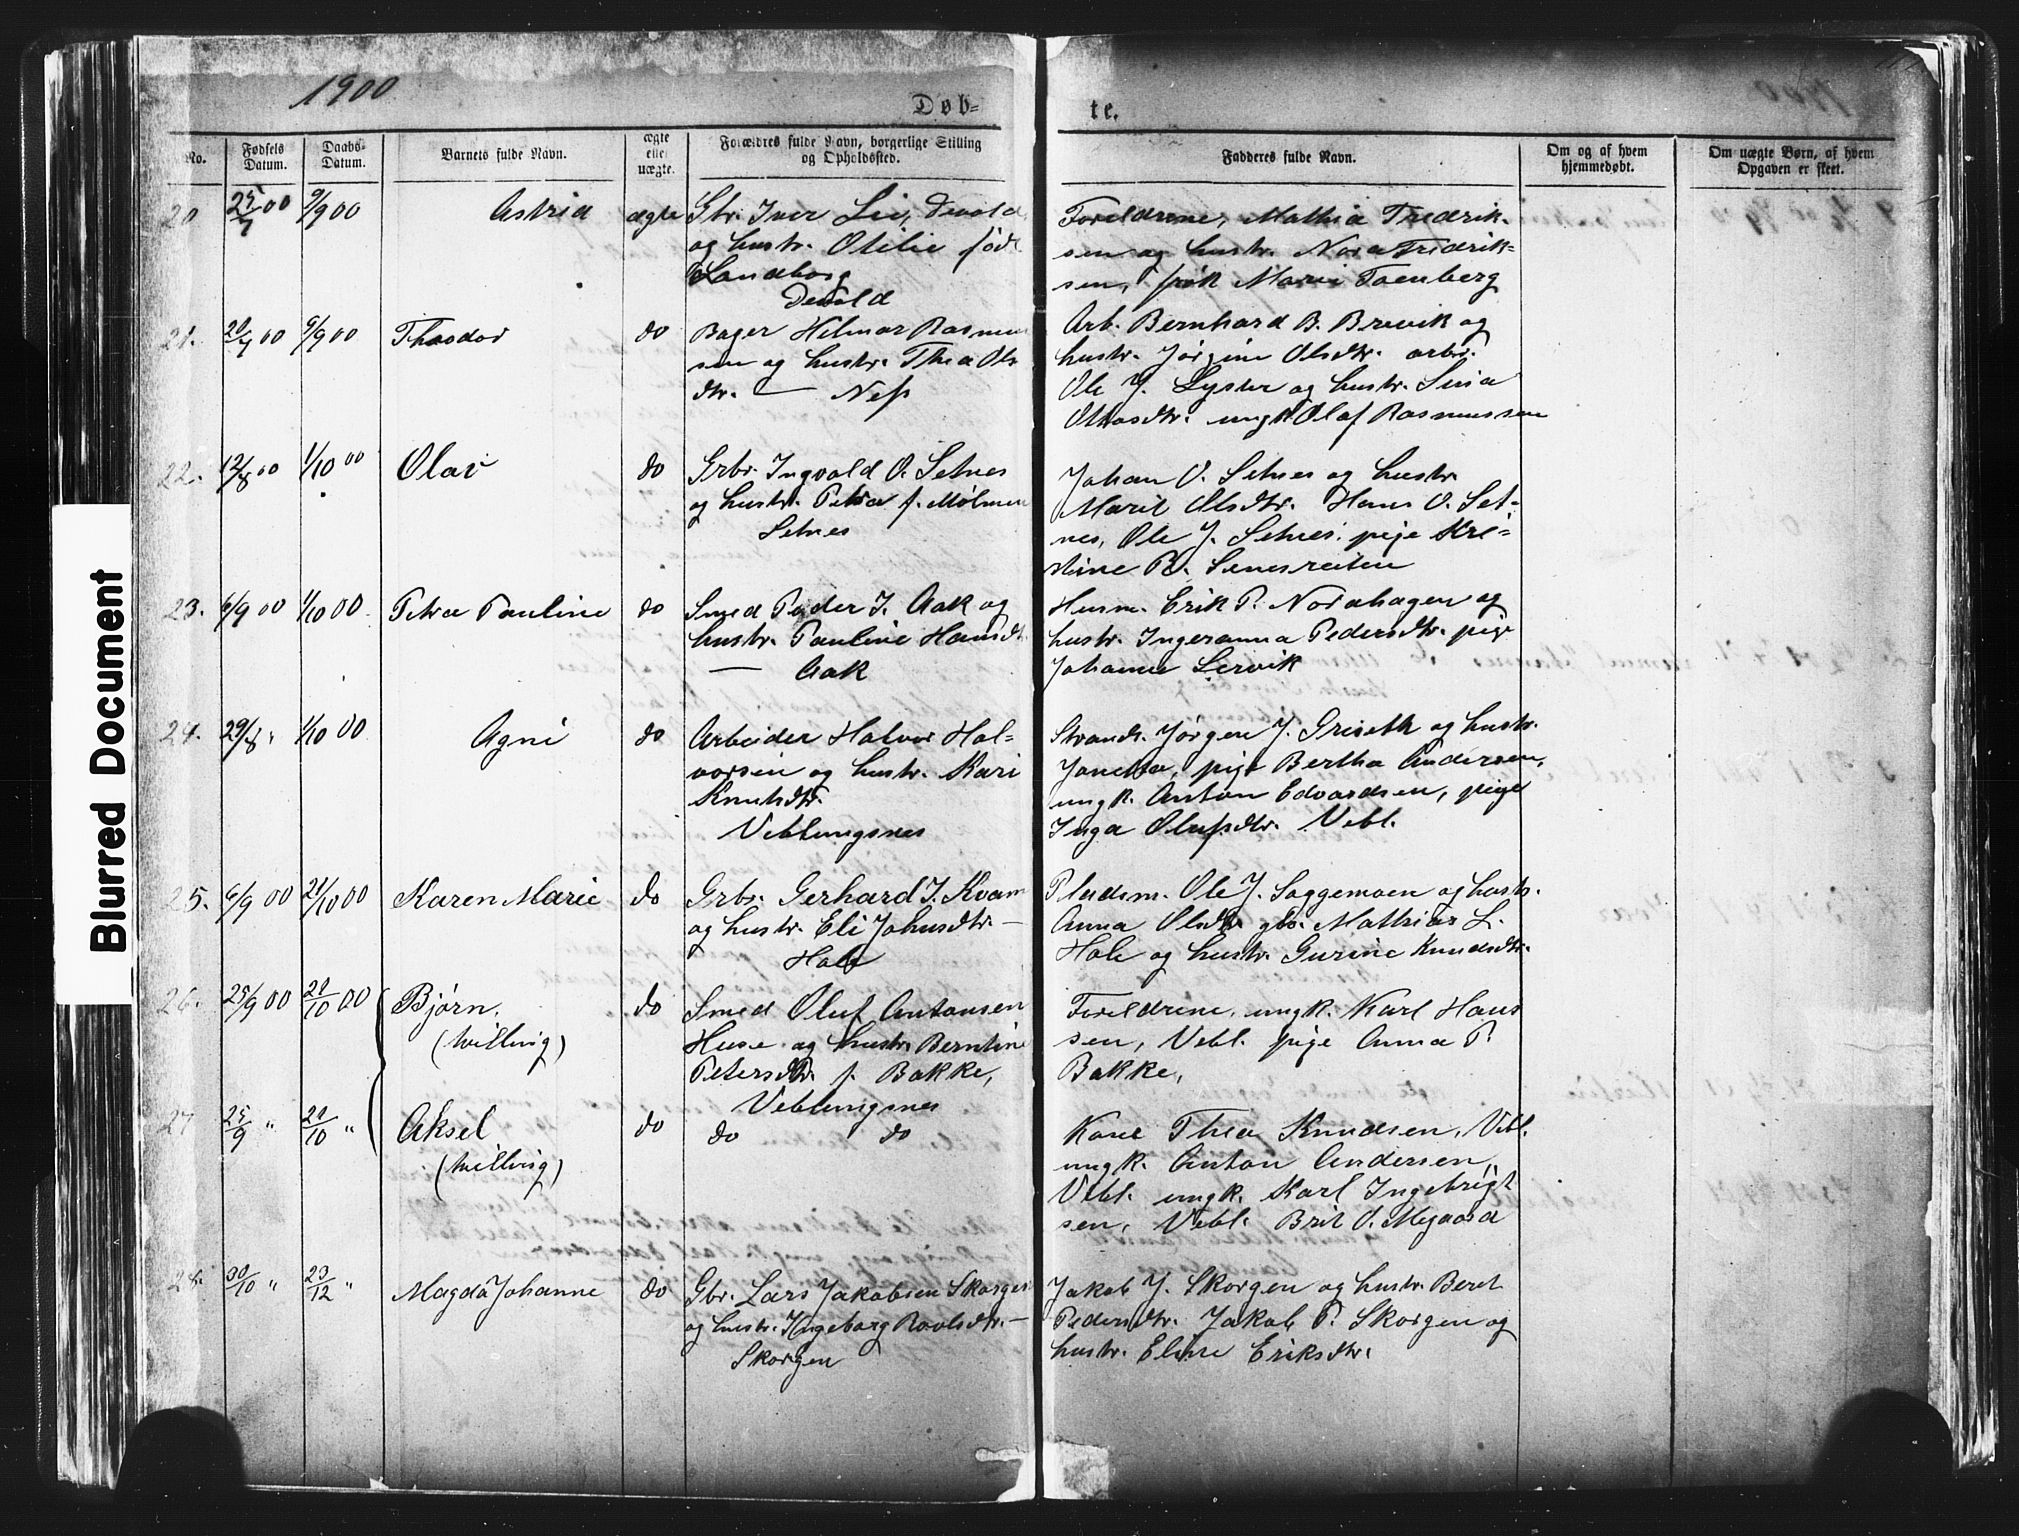 1900
Døb-
te.
No.
Fødsels Datum.
Daabs-Datum.
Barnets fulde Navn.
ægte eller uægte.
Forældres fulde Navn, borgerlige Stilling og Opholdssted.
Fadderes fulde Navn.
Om og af hvem hjemmedøbt.
Om uægte Børn, af hvem Opgaven er skeet.
20 25/7 00 9/9 00 Astrid ægte
Gbr. Iver Lie, Devold,
og hustr. Otilie
Landborg
Devold
Foreldrene, Mathia Fredrik-
sen og hustr. Nora Fredrik-
sen, frøk Marie Toenberg
21. 20/7 00 9/9 00 Theodor do
Bager Hilmar Rasmus
sen og hustr. Thea Ols
dtr. — Nes
Arb. Bernhard B. Brevik og
hustr. Jørgine Olsdtr. arbr.
Ole J. Lyster og hustr. Sina
Ottosdtr. ungk. Olaf Rasmussen
22. 12/8 00 1/10 00 Olav do
Grbr. Ingvald O. Setnes
og hustr. Petra f. Mølmen
Setnes
Johan O. Setnes og hustr.
Marit Olsdtr. Hans O. Set-
nes, Ole J. Setnes. pige Kri-
stine R. Senesreiten
23. 6/9 00 1/10 00 Petra Pauline do
Smed Peder J. Aak og
hustr. Pauline Hansdt
— Aak
Husm. Erik P. Nordhagen og
hustr. Ingeranna Pedersdtr. pige
Johanne Lervik
24. 29/8 " 1/10 00 Agni do
Arbeider Halvor Hal-
vorsen og hustr. Kari
Knutsdtr.
Veblungsnes
Strands. Jørgen J. Griseth og hustr.
Janetta, pige Bertha Andersen,
ungk. Anton Edvardsen, pige
Inga Olufsdtr. Vebl.
25. 6/9 00 21/10 00 Karen Marie do
Grbr. Gerhard J. Kvam
og hustr. Eli Johnsdtr. —
Hole
Pladsm. Ole J. Soggemoen og hustr.
Anna Olsdtr. gbr. Mathias L.
Hole og hustr. Gurine Knudsdtr.
26. 25/9 00 21/10 00 Bjørn. do
(tvilling)
Smed Oluf Antonsen
Huse og hustr. Berntine
Petersdtr. f. Bakke,
Veblungsnes
Foreldrene, ungk. Karl Hans
sen, Vebl. pige Anna P.
Bakke,
27 25/9 " 21/10 " Aksel do do do
(tvilling)
Kone Thea Knudsen, Vebl.
ungk. Anton Andersen,
Vebl. ungk. Karl Ingebrigt
sen, Vebl. Brit O. Mejaard
28. 30/10 " 23/12 " Magda Johanne do
Gbr. Lars Jakobsen Skorgen
og hustr. Ingeborg Roalsdtr. —
Skorgen
Jakob J. Skorgen og hustr. Beret
Pedersdtr. Jakob P. Skorgen og
hustr. Eline Eriksdtr.
Blurred Document